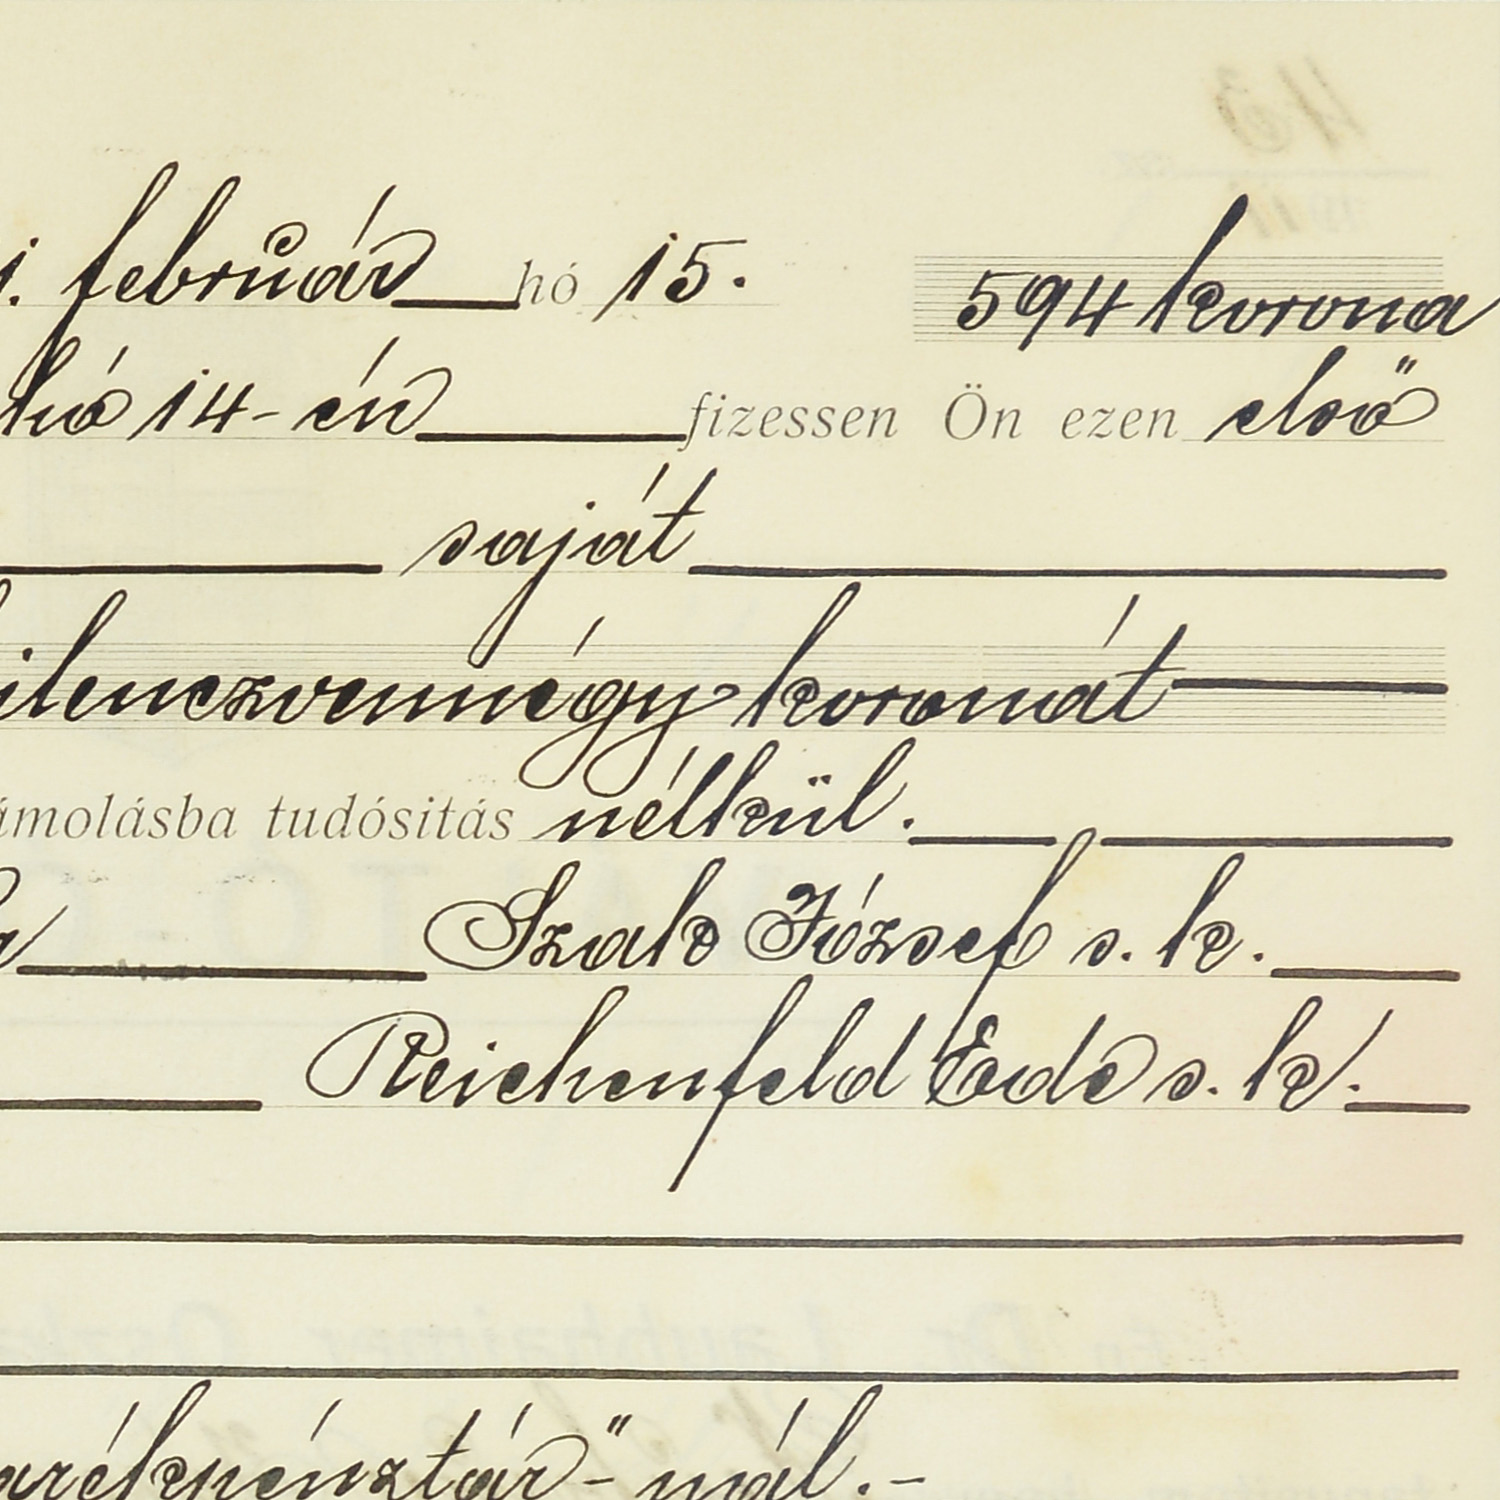 1. február hó 15. 594 korona
hó 14-én fizessen Ön ezen első
saját
ilenczvennégy koronát
ámolásba tudósitás nélkül.
Szakó József s. k.
Reichenfeld Ede s. k.
arékpénztár"-nál.-